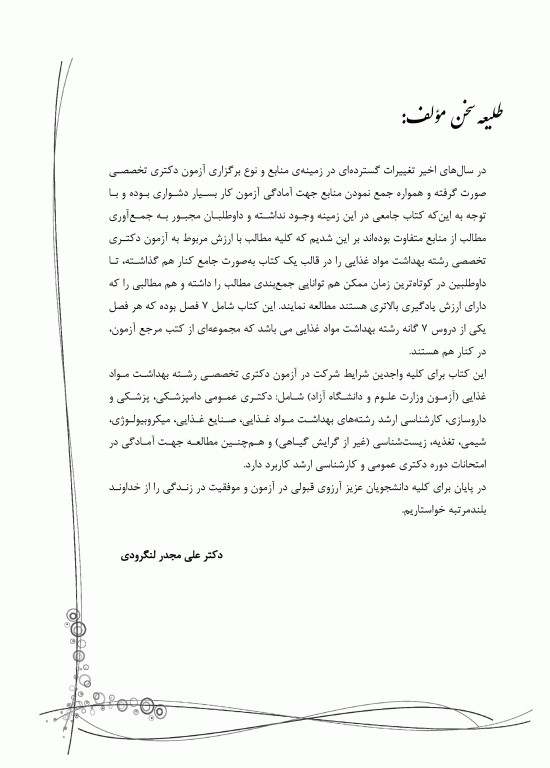 طلیعه سخن مؤلف:
در سال‌های اخیر تغییرات گسترده‌ای در زمینه‌ی منابع و نوع برگزاری آزمون دکتری تخصصی
صورت گرفته و همواره جمع نمودن منابع جهت آمادگی آزمون کار بسیار دشواری بوده و با
توجه به این‌که کتاب جامعی در این زمینه وجود نداشته و داوطلبان مجبور به جمع‌آوری
مطالب از منابع متفاوت بوده‌اند بر این شدیم که کلیه مطالب با ارزش مربوط به آزمون دکتری
تخصصی رشته بهداشت مواد غذایی را در قالب یک کتاب به‌صورت جامع کنار هم گذاشته، تا
داوطلبین در کوتاه‌ترین زمان ممکن هم توانایی جمع‌بندی مطالب را داشته و هم مطالبی را که
دارای ارزش یادگیری بالاتری هستند مطالعه نمایند. این کتاب شامل ۷ فصل بوده که هر فصل
یکی از دروس ۷ گانه رشته بهداشت مواد غذایی می باشد که مجموعه‌ای از کتب مرجع آزمون،
در کنار هم هستند.
این کتاب برای کلیه واجدین شرایط شرکت در آزمون دکتری تخصصی رشته بهداشت مواد
غذایی (آزمون وزارت علوم و دانشگاه آزاد) شامل: دکتری عمومی دامپزشکی، پزشکی و
داروسازی، کارشناسی ارشد رشته‌های بهداشت مواد غذایی، صنایع غذایی، میکروبیولوژی،
شیمی، تغذیه، زیست‌شناسی (غیر از گرایش گیاهی) و هم‌چنین مطالعه جهت آمادگی در
امتحانات دوره دکتری عمومی و کارشناسی ارشد کاربرد دارد.
در پایان برای کلیه دانشجویان عزیز آرزوی قبولی در آزمون و موفقیت در زندگی را از خداوند
بلندمرتبه خواستاریم.
دکتر علی مجدر لنگرودی